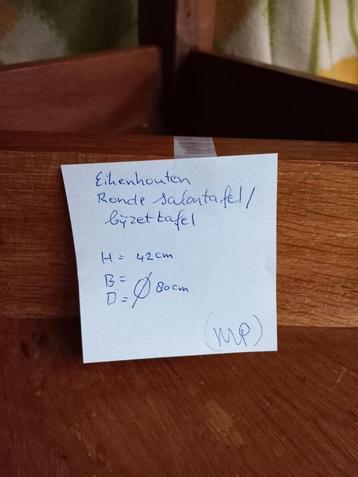 Eikenhouten
Ronde salontafel/
bijzettafel
H = 42cm
B =
D = Ø 80cm
(MP)